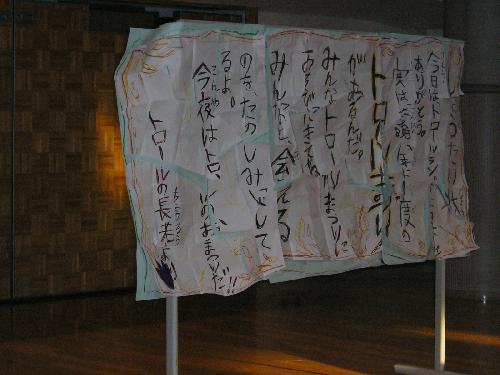 しょうたい状
今日はトロールランドに
ありがとう。
実は、今晩、年に1度の
トロールまつり
があるんだ。
みんなトロールまつりに
あそびにきてね。
みんなと、会える
のを、たのしみにして
るよ。
今夜はトロールのおまつりだ!!
こんや
トロールの長老より
ちょうろう